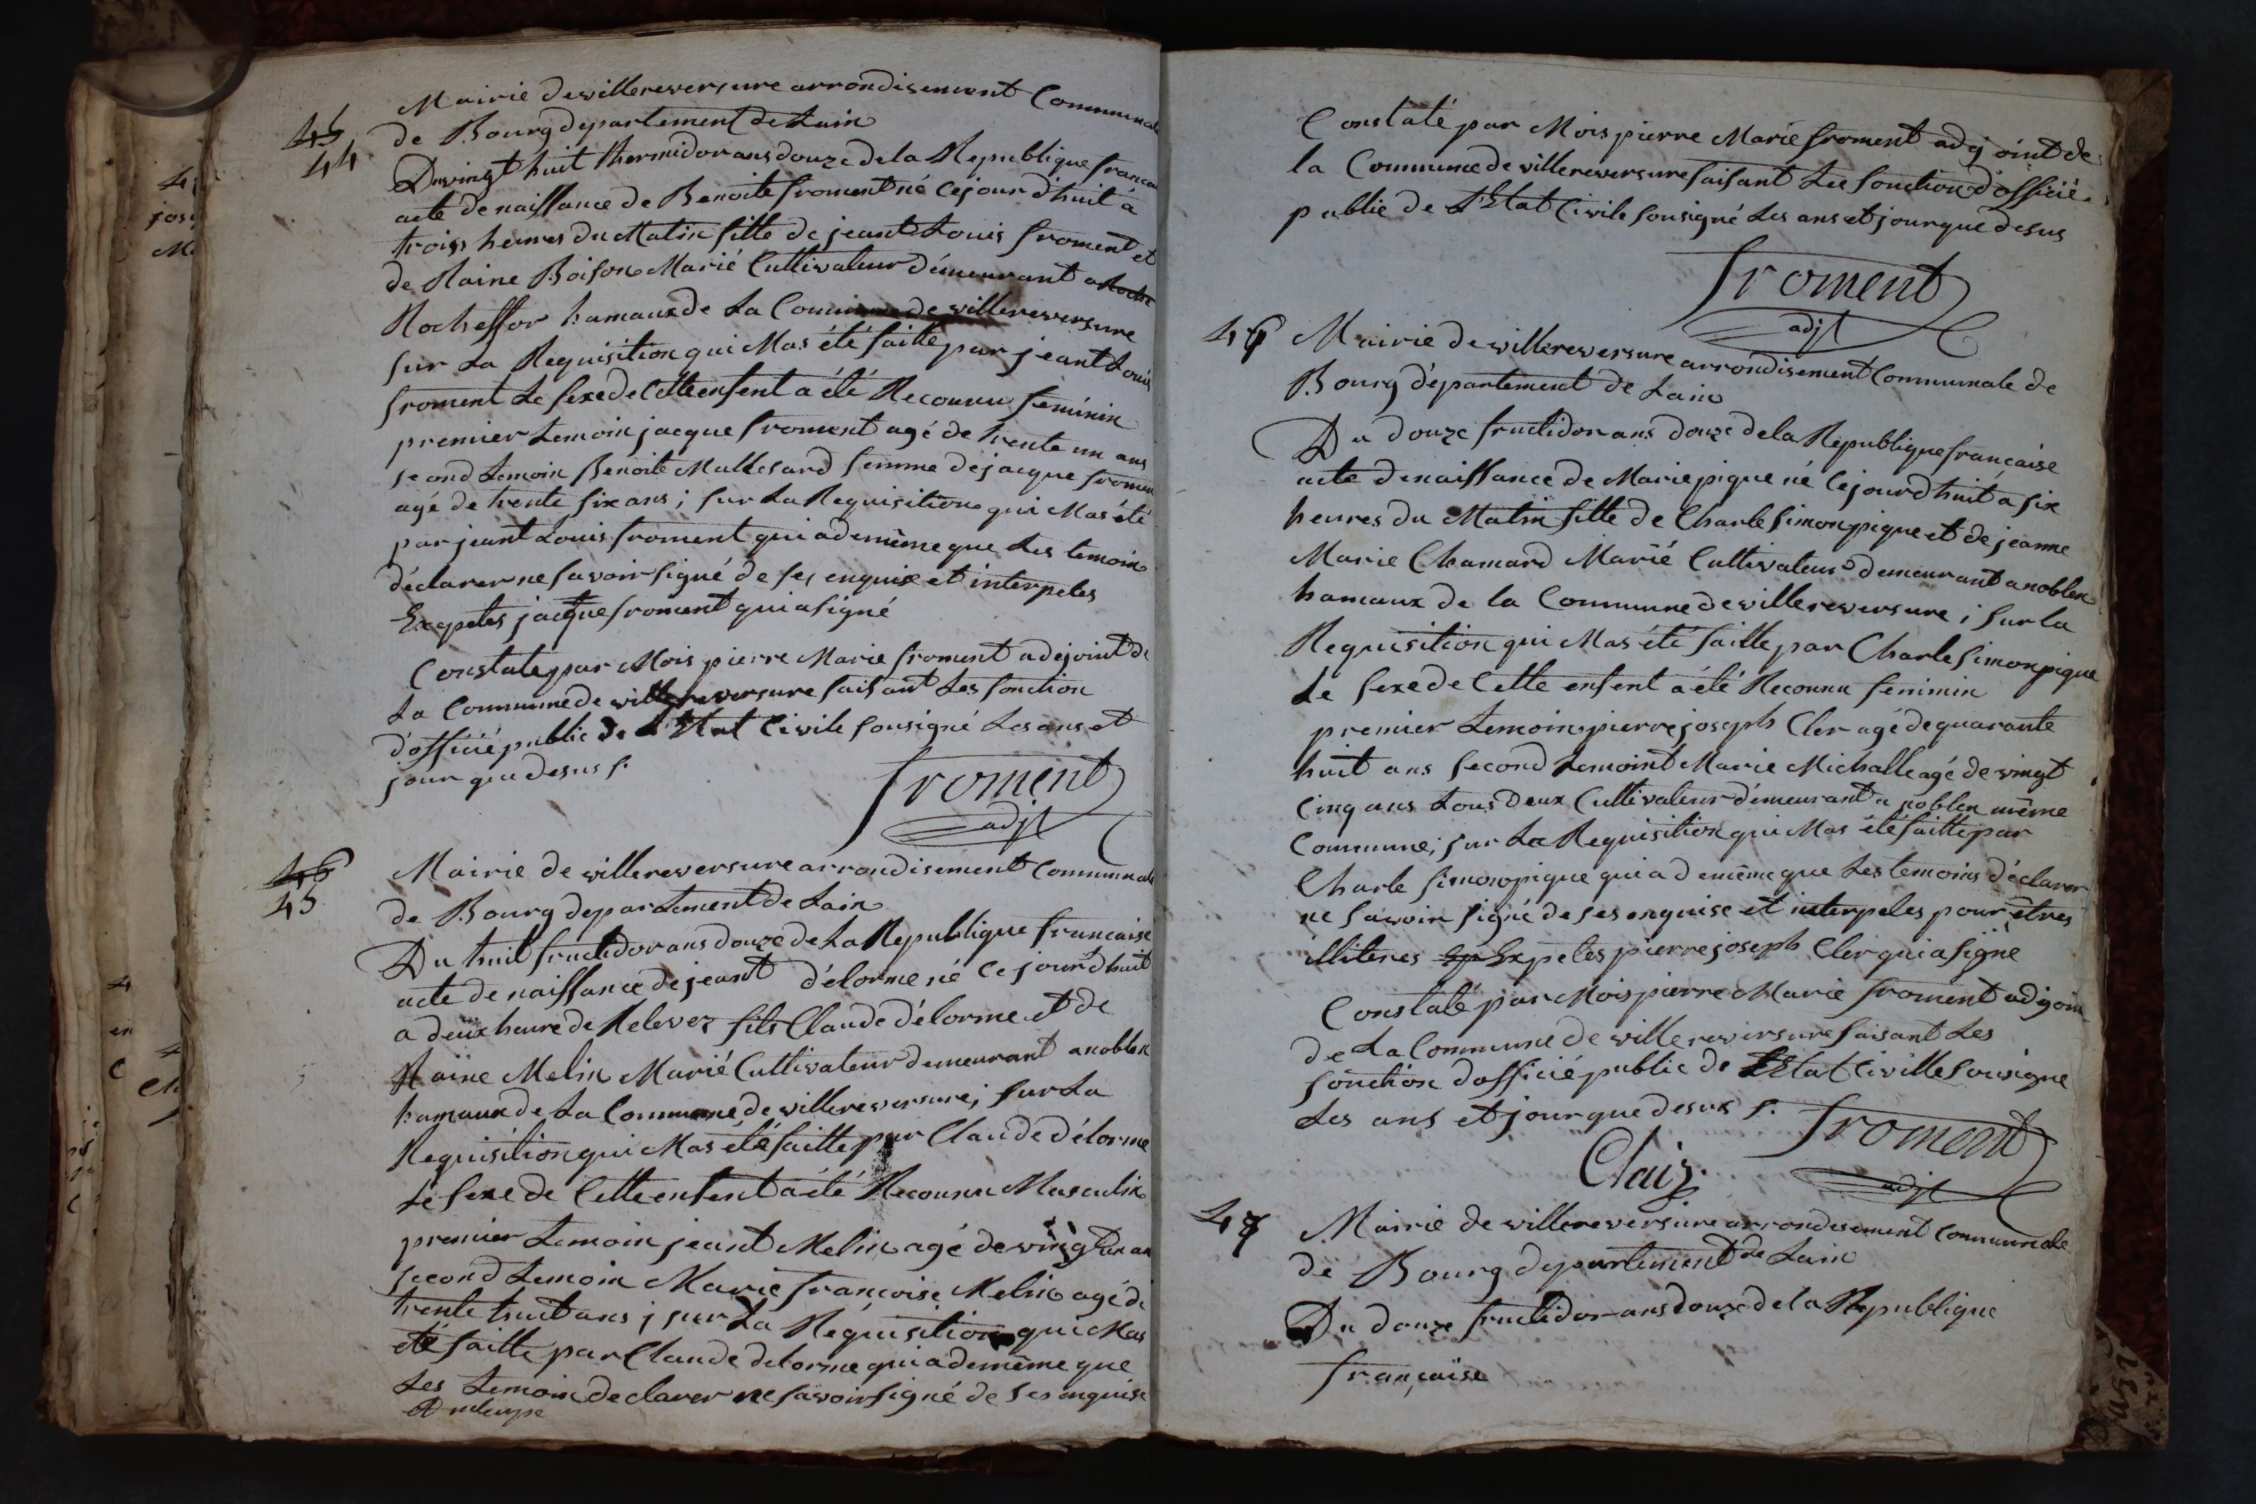 45
44
Mairie de villereversure arrondisement Communal
de Bourg departement de Lain
Du vingt huit thermidor ans douze de la Republique francai
acte de naissance de Benoite froment né cejourd'huit à
trois heures du Matin fille de jeant Louis froment et
de Raine Boison Marié Cultivateur démeurant a Roche
Rocheffor hamaux de La Commune de villereversure
sur La Requisition qui Mas été faitte par jeant Louis
froment Le sexe de Cette enfent a été Reconnu feminin
premier temoin jacque froment agé de trente un ans
second temoin Benoite Mallesard femme de jacque fromen
agé de trente six ans ; sur La Requisition qui Mas été
par jeant Louis froment qui a de mème que Les temoin
déclarer ne savoir signé de ses enquise et interpeles
Exepetes jacque froment qui a signé
Constate par Mois pierre Marie froment adejoint de
La Commune de villereversure faisant Les fonction
d'officié public de L'Etat Civile sousigné Les ans et
jour que desus f.
froment
adjt
46
45
Mairie de villereversure arrondisement Communale
de Bourg departement de Lain
Du huit fructidor ans douze de La Republique francaise
acte de naissance de jeant délorme né Ce jourd'huit
a deux heure de Relevez fils Claude délorme et de
Raine Melin Marié Cultivateur demeurant a noblen
hamaux de La Commune de villereversure ; sur La
Requisition qui Mas été faitte par Claude délorme
Le sexe de Cette enfent a été Reconnu Masculin
premier temoin jeant Melin agé de vingt un an
second temoin Marie francoise Melin agé de
trente huit ans ; sur La Requisition qui Mas
été faitte par Claude delorme qui a de mème que
Les temoin declarer ne savoir signé de ses enquise
Constaté par Mois pierre Marie froment adjoint de
la Commune de villereversure faisant Les fonction d'officié
public de L'Etat Civile sousigné Les ans et jour que desus
froment
adjt
46
Mairie de villereversure arrondisement Communale de
Bourg département de Lain
Du douze fructidor ans douze de la Republique francaise
acte de naissance de Marie pique né Cejourd'huit a six
heures du Matin fille de Charle simon pique et de jeanne
Marie Chamard Marié Cultivateur demeurant a noblen
hamaux de la Commune de villereversure ; sur la
Requisition qui Mas été faitte par Charle simon pique
Le sexe de Cette enfent a été Reconnu feminin
premier temoin pierre joseph Cler agé de quarante
huit ans second temoint Marie Michalle agé de vingt
Cinq ans tous deux Cultivateur démeurant a noblen mème
Commune ; sur La Requisition qui Mas été faitte par
Charle simon pique qui a de mème que Les temoins déclarer
ne savoir signé de ses enquise et interpeles pour êtres
illiteres Expetes pierre joseph Cler qui a signé
Constaté par Mois pierre Marie froment adjoin
de La Commune de villereversure faisant Les
fonction d'officié public de L'Etat Civille sousigne
Les ans et jour que desus f.
froment
adjt
Claiz
47
Mairie de villereversure arrondisement communale
de Bourg departement de Lain
Du douze fructidor ans douze de la Republique
française